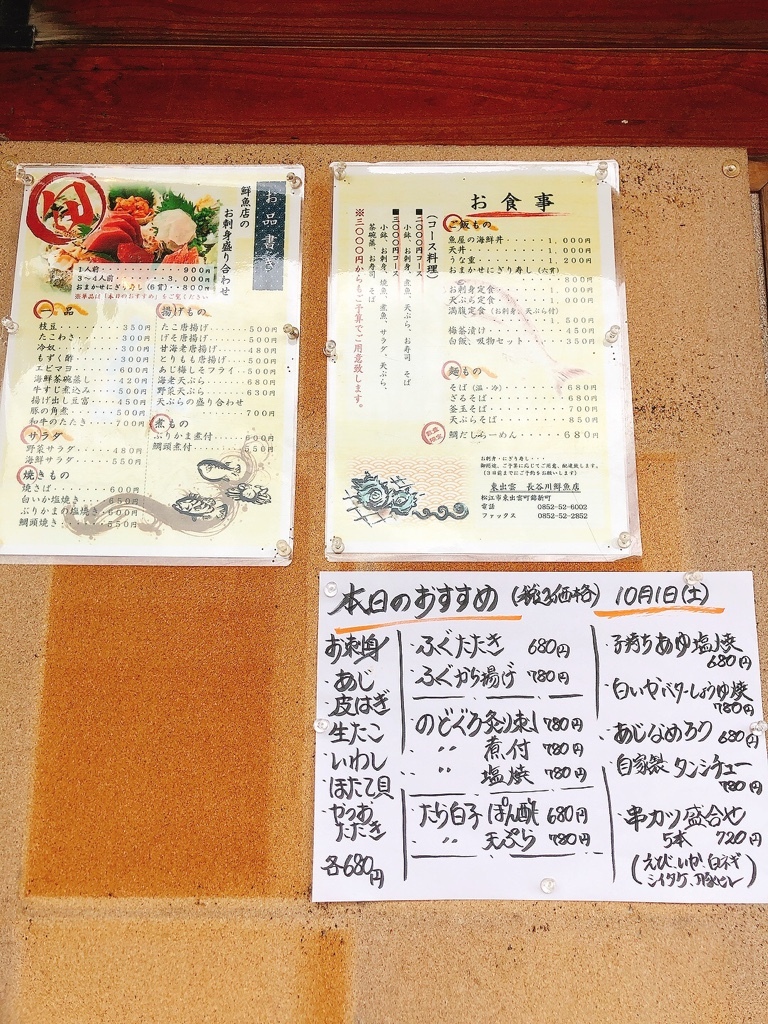 旬
お品書き
鮮魚店の
お刺身盛り合わせ
1人前・・・・・・・・・900円
3〜4人前・・・・・・3,000円
おまかせにぎり寿し(6貫)・・800円
※単品は「本日のおすすめ」をご覧ください
一品
枝豆・・・・・・・350円
たこわさ・・・・・300円
冷奴・・・・・・・300円
もずく酢・・・・・300円
エビマヨ・・・・・600円
海鮮茶碗蒸し・・・420円
牛すじ煮込み・・・500円
揚げ出し豆富・・・450円
豚の角煮・・・・・500円
和牛のたたき・・・700円
サラダ
野菜サラダ・・・・480円
海鮮サラダ・・・・550円
焼きもの
焼さば・・・・・・600円
白いか塩焼き・・・650円
ぶりかまの塩焼き・600円
鯛頭焼き・・・・・550円
揚げもの
たこ唐揚げ・・・・500円
げそ唐揚げ・・・・500円
甘海老唐揚げ・・・480円
とりもも唐揚げ・・500円
あじ梅しそフライ・500円
海老天ぷら・・・・680円
野菜天ぷら・・・・630円
天ぷらの盛り合わせ
・・・・・・・・・700円
煮もの
ぶりかま煮付・・・600円
鯛頭煮付・・・・・550円
お食事
ご飯もの
魚屋の海鮮丼・・・・・1,000円
天丼・・・・・・・・・1,000円
うな重・・・・・・・・1,200円
おまかせにぎり寿し(六貫)
・・・・・・・・・800円
お刺身定食・・・・・・800円
天ぷら定食・・・・・・800円
満腹定食(お刺身、天ぷら付)
・・・・・・・・・1,500円
梅茶漬け・・・・・・・450円
白飯、吸物セット・・・350円
麺もの
そば(温・冷)・・・・680円
ざるそば・・・・・・・680円
釜玉そば・・・・・・・700円
天ぷらそば・・・・・・850円
数量限定
鯛だしらーめん・・・・680円
(コース料理)
■二〇〇〇円コース
小鉢、お刺身、煮魚、天ぷら、お寿司、そば
■三〇〇〇円コース
小鉢、お刺身、焼魚、煮魚、サラダ、天ぷら、
茶碗蒸、お寿司、そば
※二〇〇〇円からもご予算でご用意致します。
お刺身・にぎり寿し・・・
御用途、ご予算に応じてご用意、配達致します。
(3日前までにご予約をお願いします)
東出雲 長谷川鮮魚店
松江市東出雲町錦新町
電話 0852-52-6002
ファックス 0852-52-2852
本日のおすすめ (税込価格) 10月1日(土)
お刺身
・あじ
・皮はぎ
・生たこ
・いわし
・ほたて貝
・かつお
たたき
各680円
・ふぐたたき 680円
・ふぐから揚げ 780円
・のどぐろ炙り刺し 780円
・〃 煮付 780円
・〃 塩焼 780円
・たら白子 ぽん酢 680円
・〃 天ぷら 780円
・子持ちあゆ塩焼
680円
・白いかバターしょうゆ焼
780円
・あじなめろう 680円
・自家製 タンシチュー
780円
・串カツ盛合せ
5本 720円
(えび、いか、白ネギ
シイタケ、豚ヒレ)